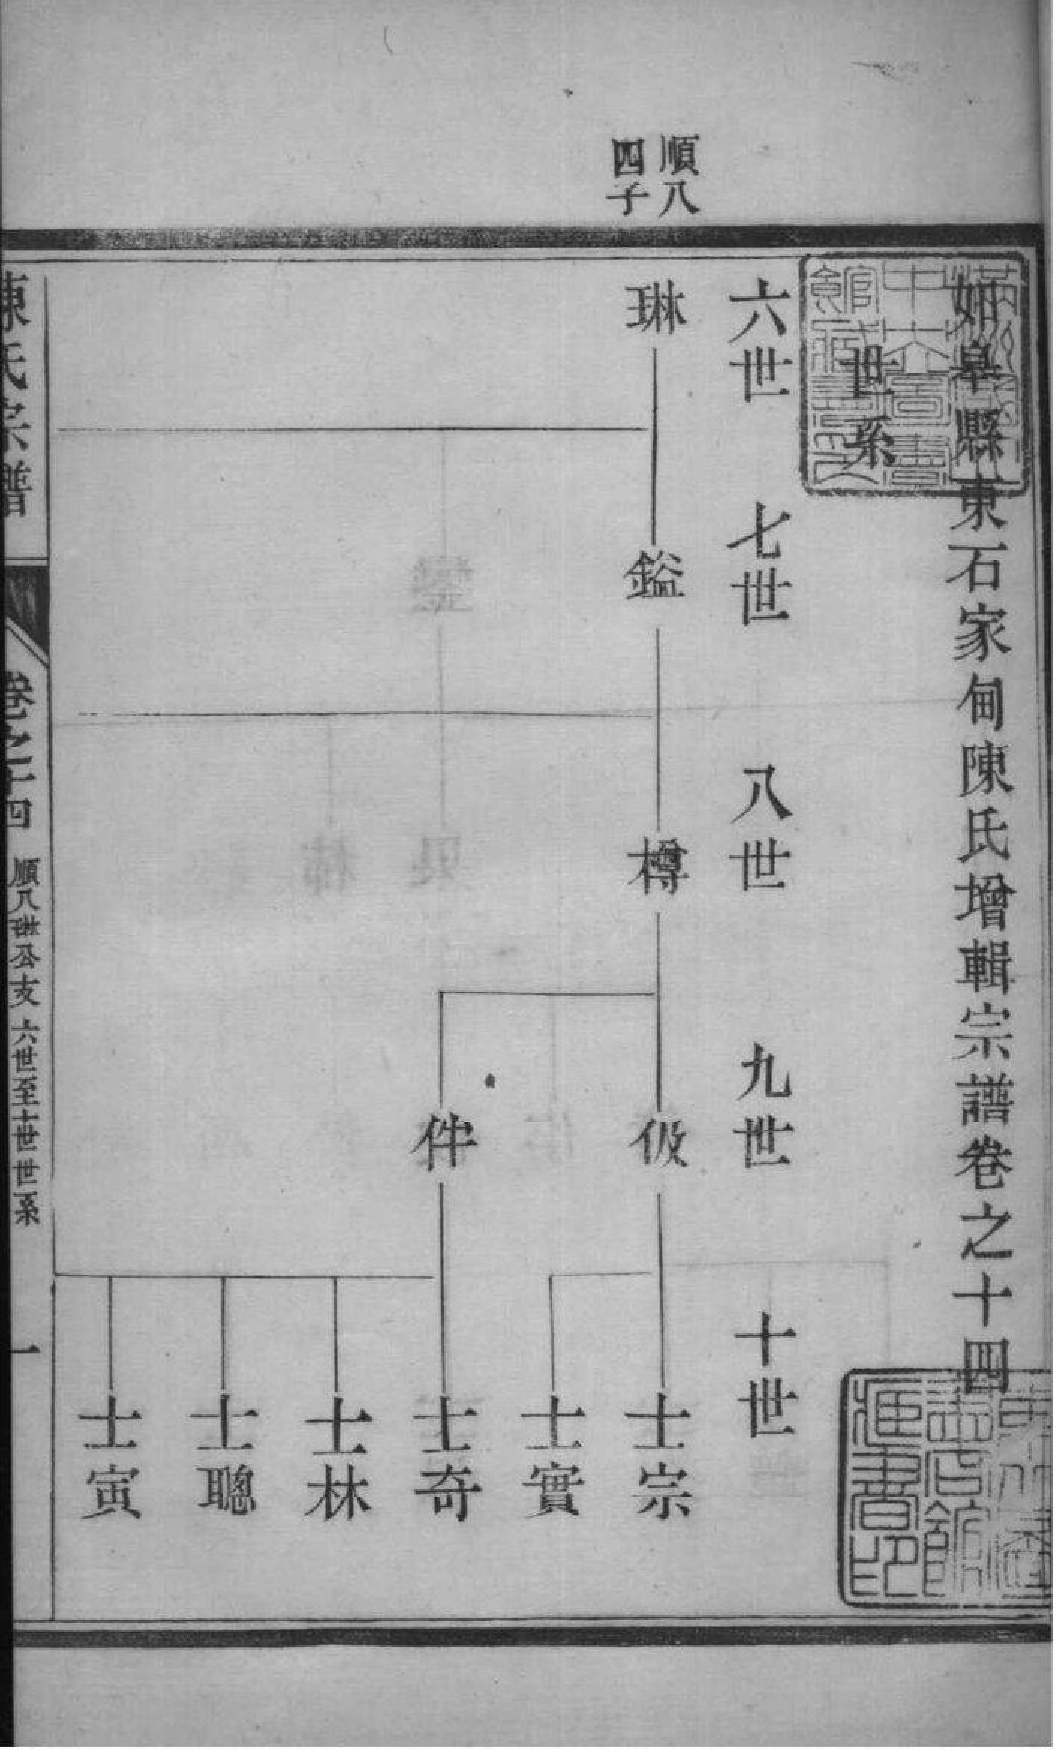 如皋縣東石家甸陳氏增輯宗譜卷之十四
世系
六世
七世
八世
九世
十世
順八
四子
琳
鎰
樽
伋
件
士宗
士實
士奇
士林
士聰
士寅
陳氏宗譜
卷之十四
順八琳公支六世至十世世系
一